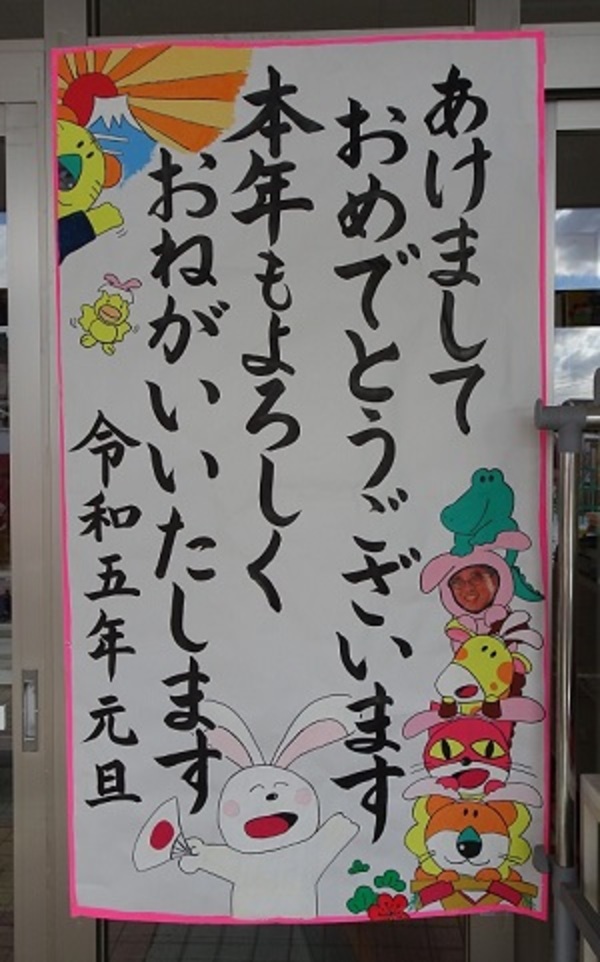 あけまして
おめでとうございます
本年もよろしく
おねがいいたします
令和五年元旦